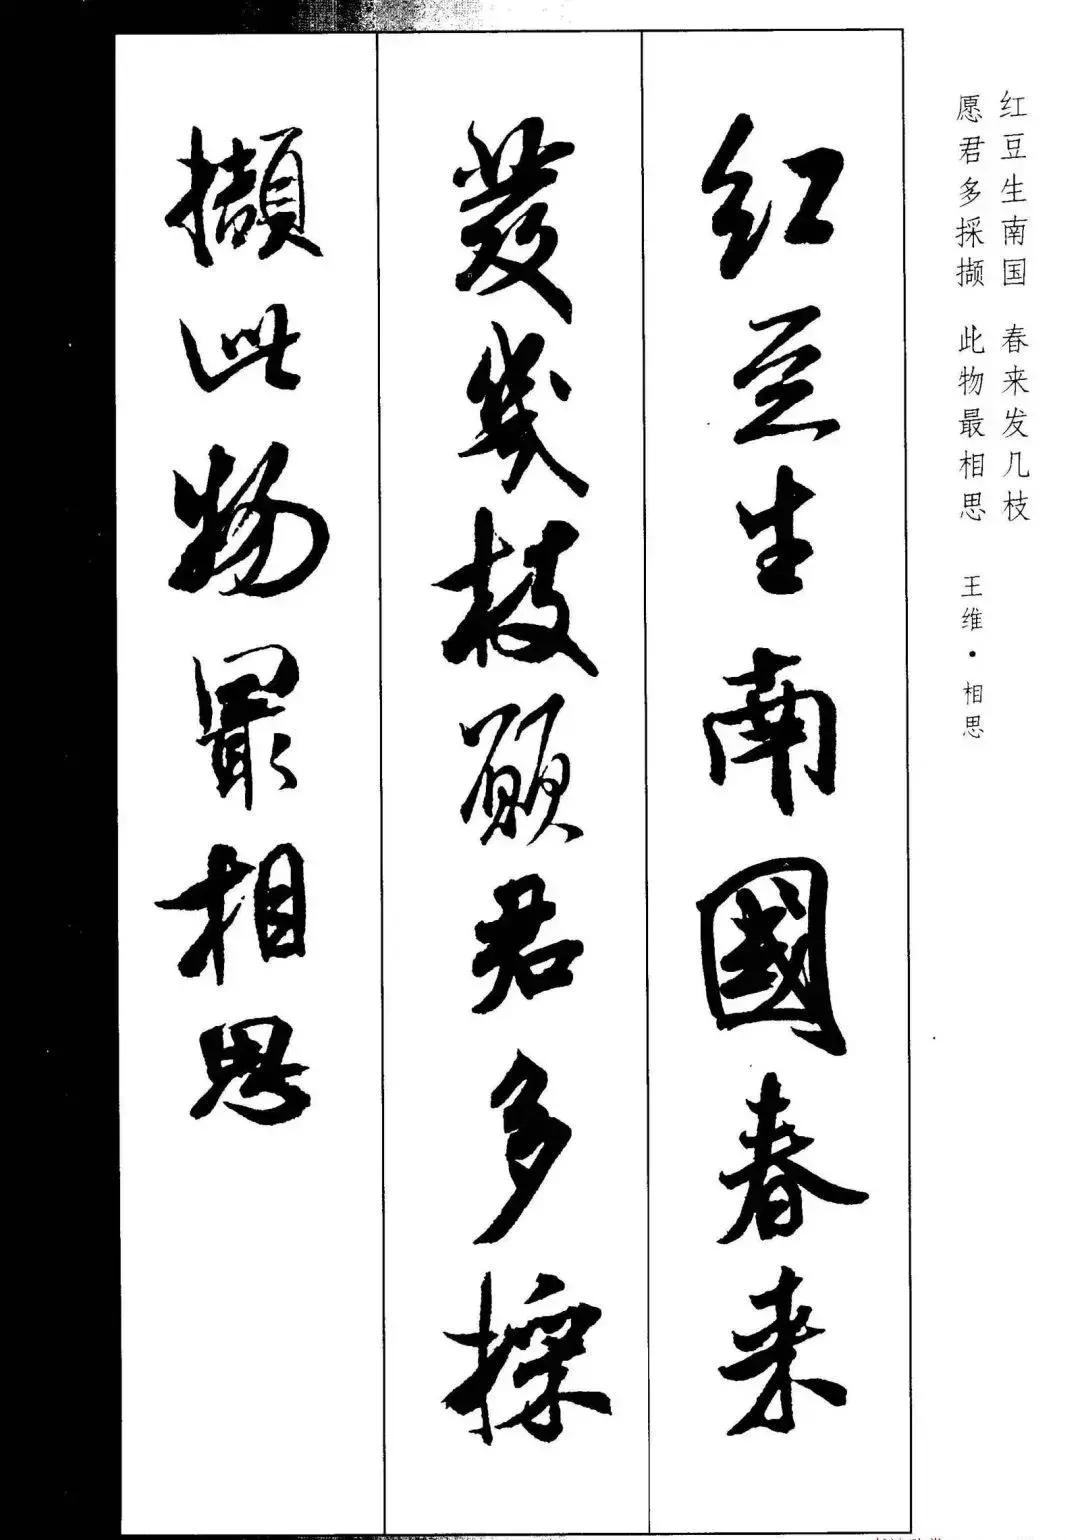 红豆生南国 春来发几枝
愿君多採撷 此物最相思 王维·相思
红豆生南國春来
發幾枝願君多採
擷此物最相思